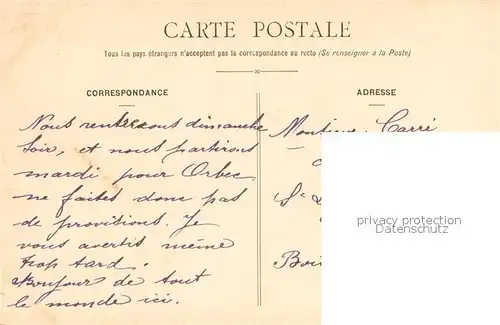 CARTE POSTALE
Tous les pays étrangers n'acceptent pas la correspondance au recto (Se renseigner à la Poste)
CORRESPONDANCE
Nous rentrerons dimanche
soir, et nous partirons
mardi pour Orbec
ne faites donc pas
de provisions. Je
vous avertis même
trop tard.
Bonjour de tout
le monde ici.
ADRESSE
Monsieur Carré
St
privacy protection
Datenschutz